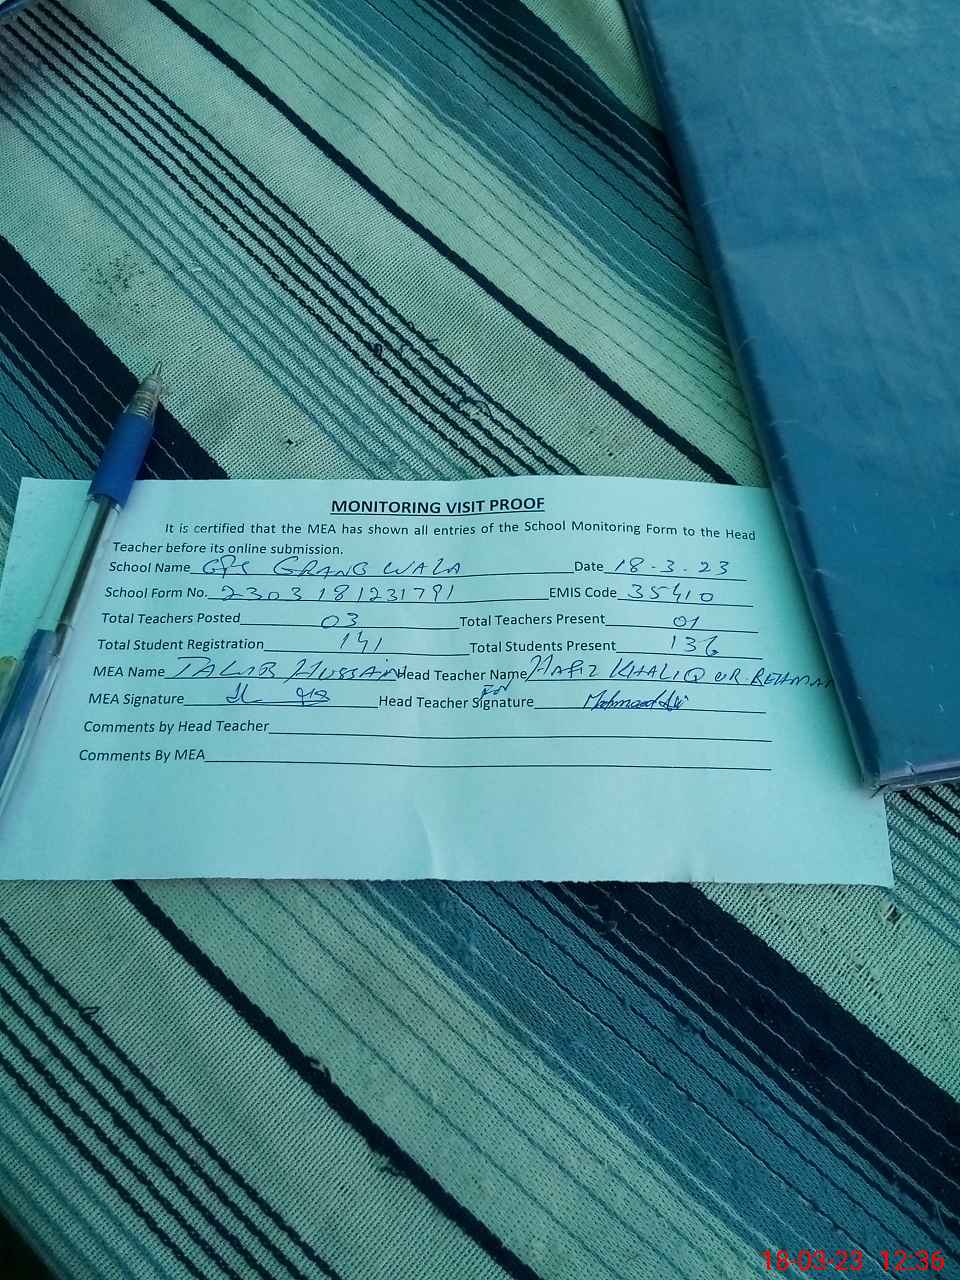 MONITORING VISIT PROOF
It is certified that the MEA has shown all entries of the School Monitoring Form to the Head
Teacher before its online submission.
School Name GPS GRANG WALA Date 18-3-23
School Form No. 2303181231791 EMIS Code 35410
Total Teachers Posted 03 Total Teachers Present 01
Total Student Registration 141 Total Students Present 136
MEA Name TALIB HUSSAIN Head Teacher Name HAFIZ KHALIQ UR-REHMAN
MEA Signature Head Teacher Signature For
Comments by Head Teacher
Comments By MEA
18-03-23 12:36